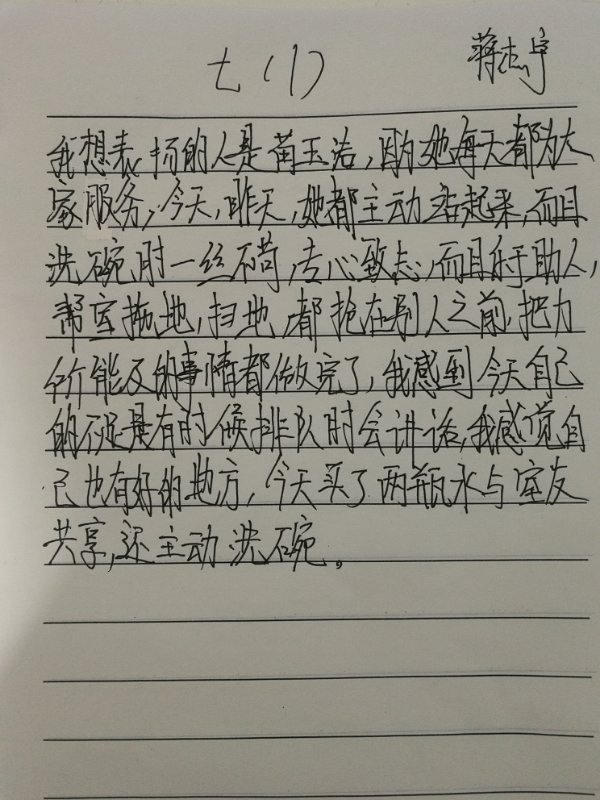 七(1) 蒋杰宇
我想表扬的人是苗玉洁,因为她每天都为大
家服务,今天,昨天,她都主动站起来,而且
洗碗时一丝不苟,专心致志,而且乐于助人,
帮室拖地,扫地,都抢在别人之前,把力
所能及的事情都做完了,我感到今天自己
的不足是有时候排队时会讲话,我感觉自
己也有好的地方,今天买了两瓶水与室友
共享,还主动洗碗。